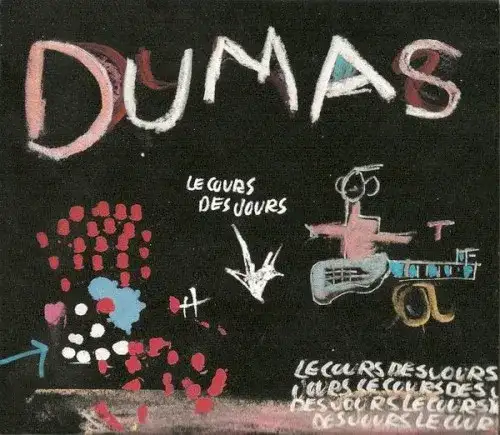 DUMAS
LE COURS
DES JOURS
H
T
a
LE COURS DES JOURS
JOURS LE COURS DES J
DES JOURS LE COURS
DES JOURS LE COUR